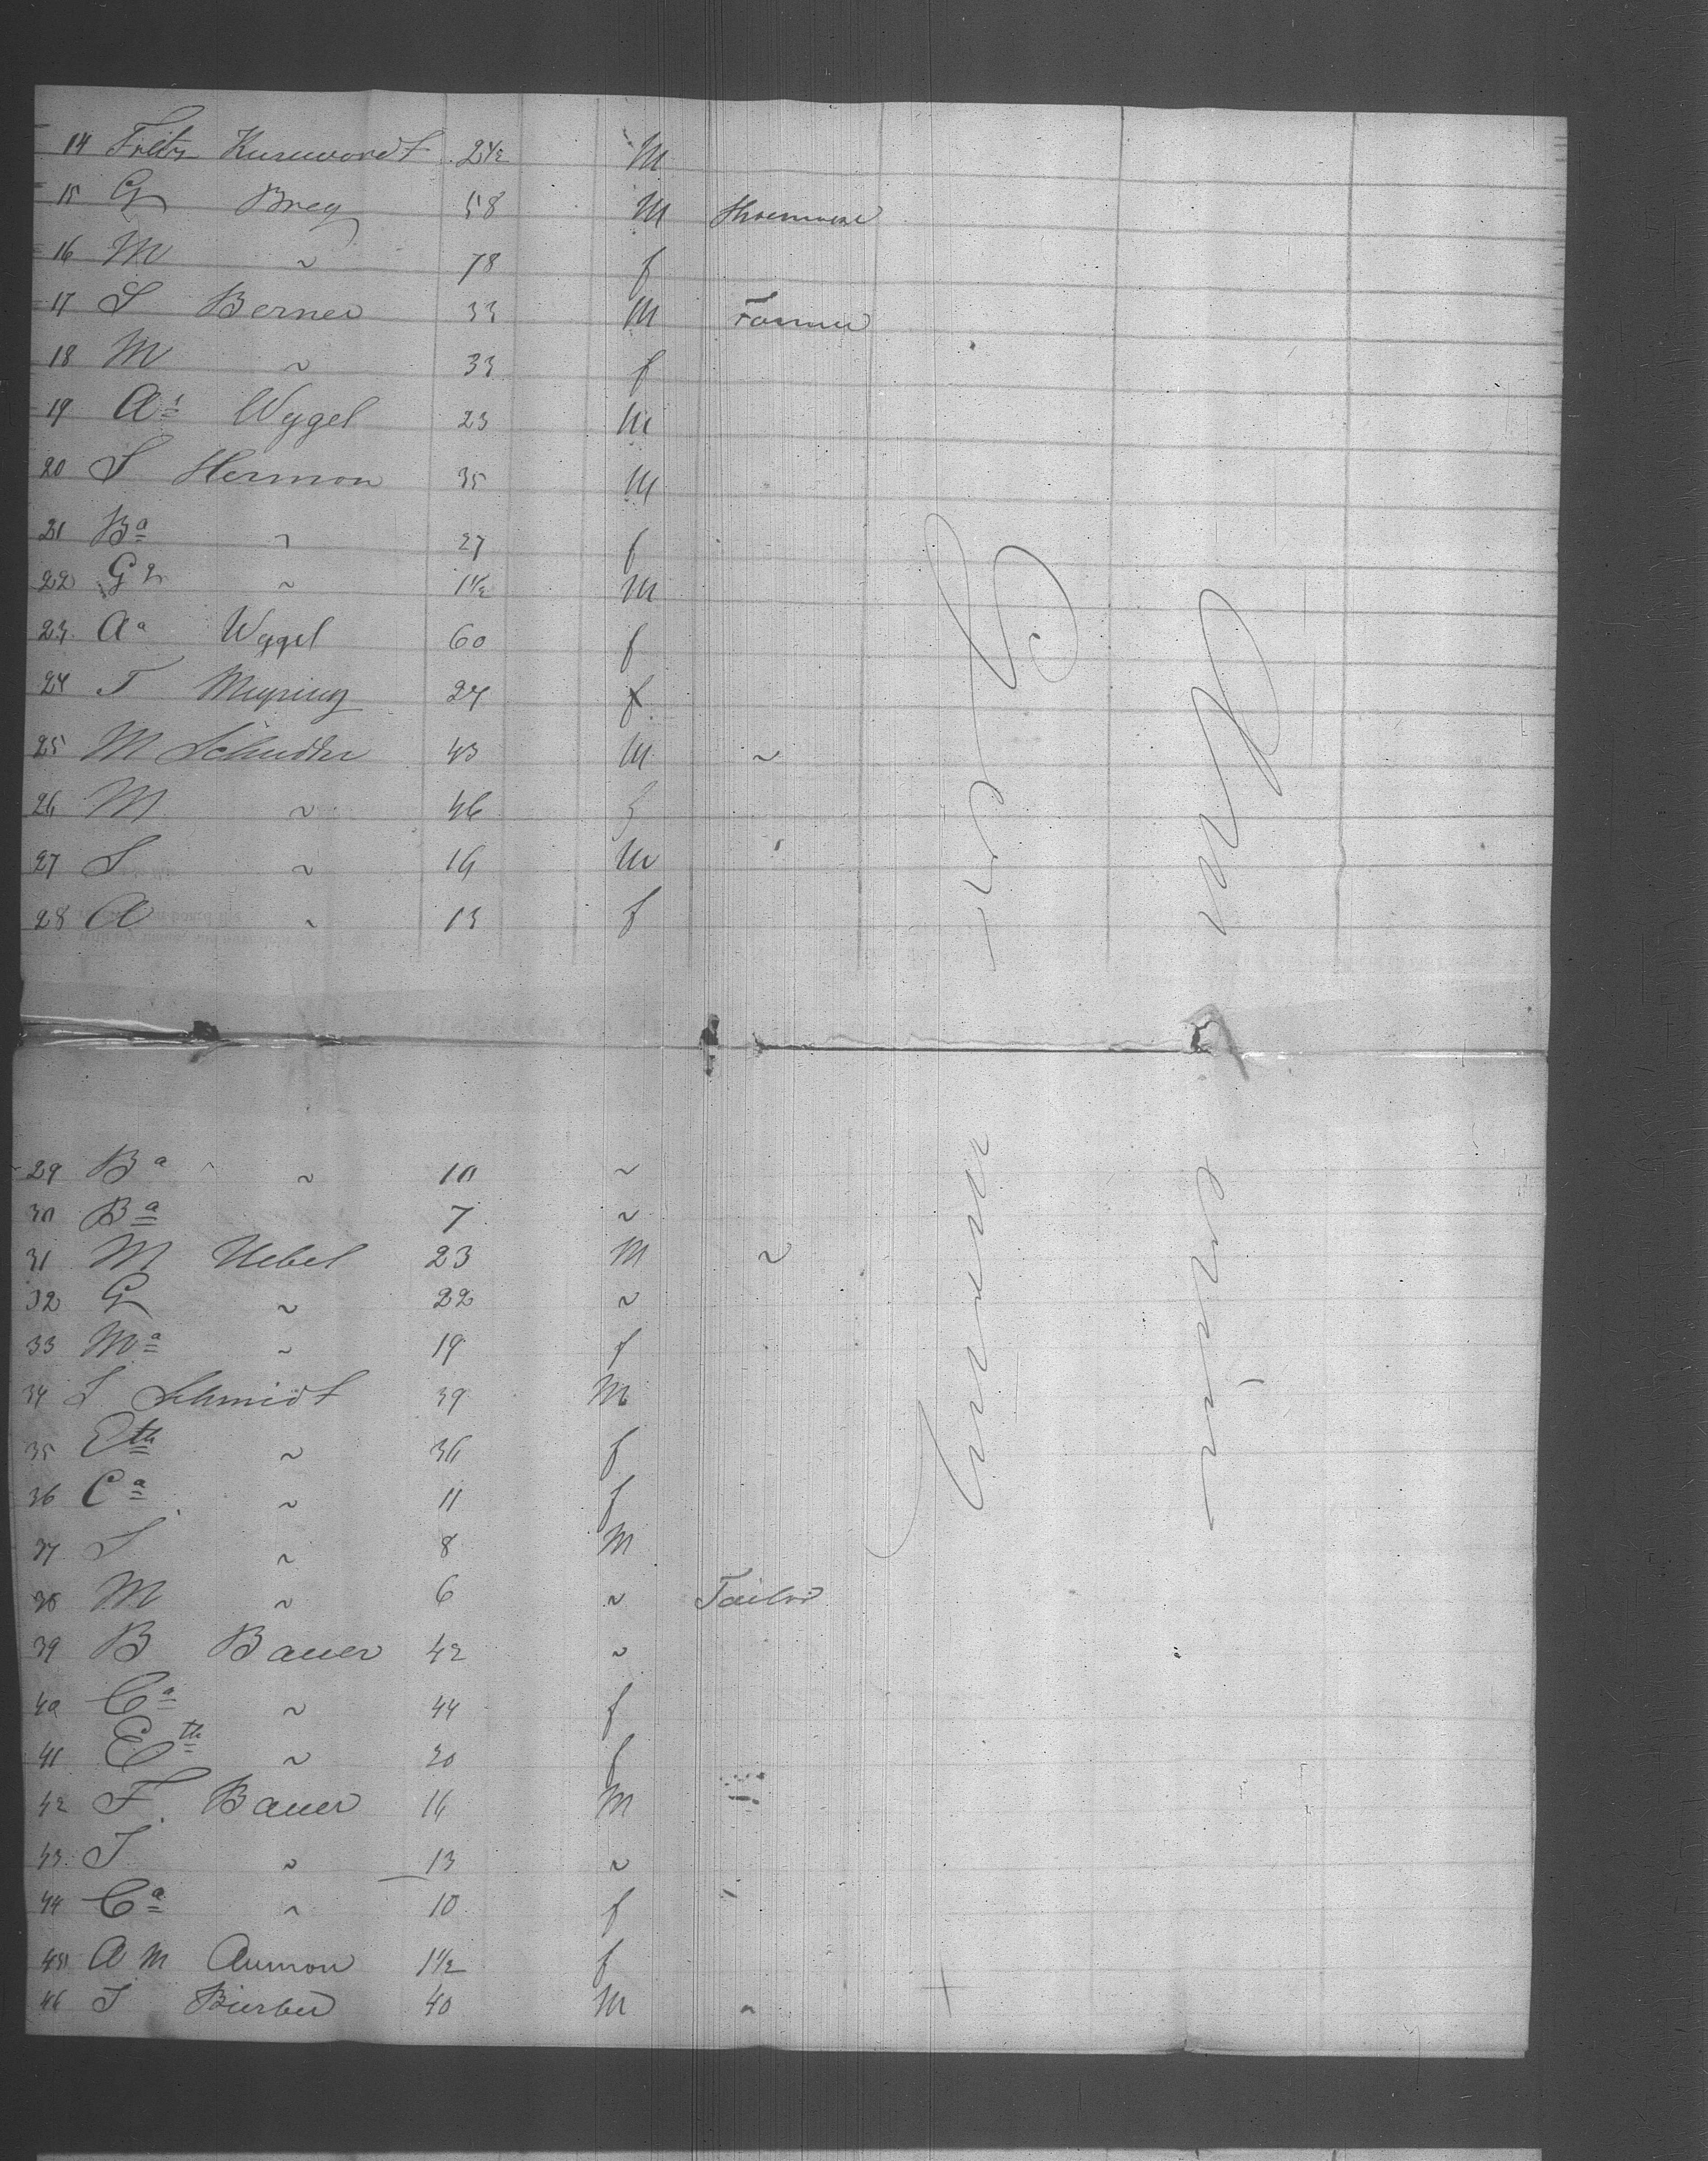 14 Fritz Kurwordt 2 1/2 M
15 G Brey 58 M
16 M ~ 78 f
17 S Berner 33 M Farmer
18 M ~ 33 f
19 A Wygel 23 M
20 S Hermon 35 M
21 Bª ~ 27 f
22 G ~ 1 1/2 M
23 Aª Wygel 60 f
24 T 24 f
25 M 43 M ~
26 M ~ 46 f
27 S ~ 16 M
28 A ~ 13 f
29 Bª ~ 10 ~
30 Bª 7 ~
31 M Uebel 23 M ~
32 G ~ 22 ~
33 Mª ~ 19 f
34 S Schmidt 39 M
35 Eth ~ 36 f
36 Cª ~ 11 f
37 S ~ 8 M
38 M ~ 6 ~ Tailor
39 B Bauer 42 ~
40 Cª ~ 44 f
41 Eth ~ 20 f
42 F Bauer 16 M
43 J ~ 13 ~
44 Cª ~ 10 f
45 A M Aumon 1 1/2 f
46 J 40 M ~
Germany
America